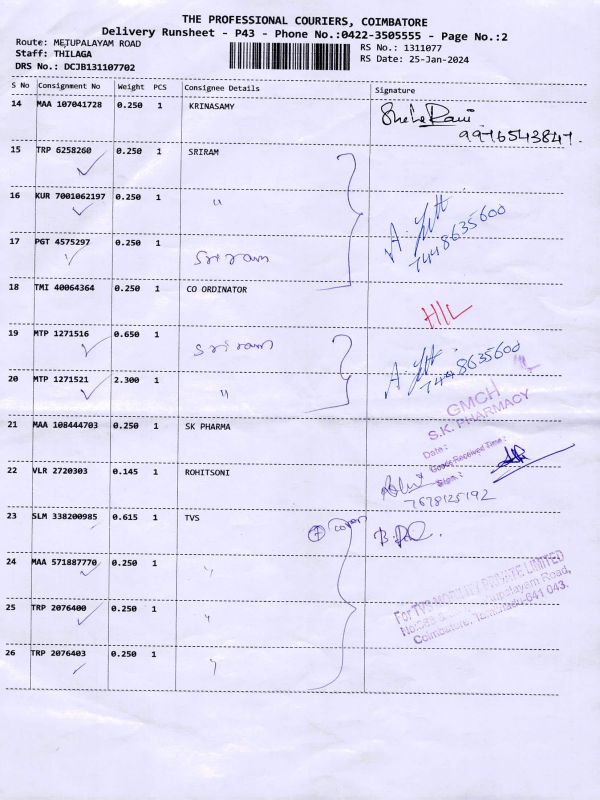 THE PROFESSIONAL COURIERS, COIMBATORE
Delivery Runsheet - P43 - Phone No.:0422-3505555 - Page No.:2
Route: METUPALAYAM ROAD
Staff: THILAGA
DRS No.: DCJB131107702
RS No.: 1311077
RS Date: 25-Jan-2024
S No Consignment No Weight PCS Consignee Details Signature
14 MAA 107041728 0.250 1 KRINASAMY
9976543847.
15 TRP 6258260 0.250 1 SRIRAM
16 KUR 7001062197 0.250 1 "
7448635600
17 PGT 4575297 0.250 1 Sriram
18 TMI 40064364 0.250 1 CO ORDINATOR
19 MTP 1271516 0.650 1 Sriram
7448635600
20 MTP 1271521 2.300 1 "
21 MAA 108444703 0.250 1 SK PHARMA
GMCH
S.K. PHARMACY
Date:
Goods Received Time:
Sign:
22 VLR 2720303 0.145 1 ROHITSONI
7678125192
23 SLM 338200985 0.615 1 TVS
24 MAA 571887770 0.250 1 "
25 TRP 2076400 0.250 1 "
For TVS MOBILITY PRIVATE LIMITED
Coimbatore, Tamilnadu-641 043.
26 TRP 2076403 0.250 1 "